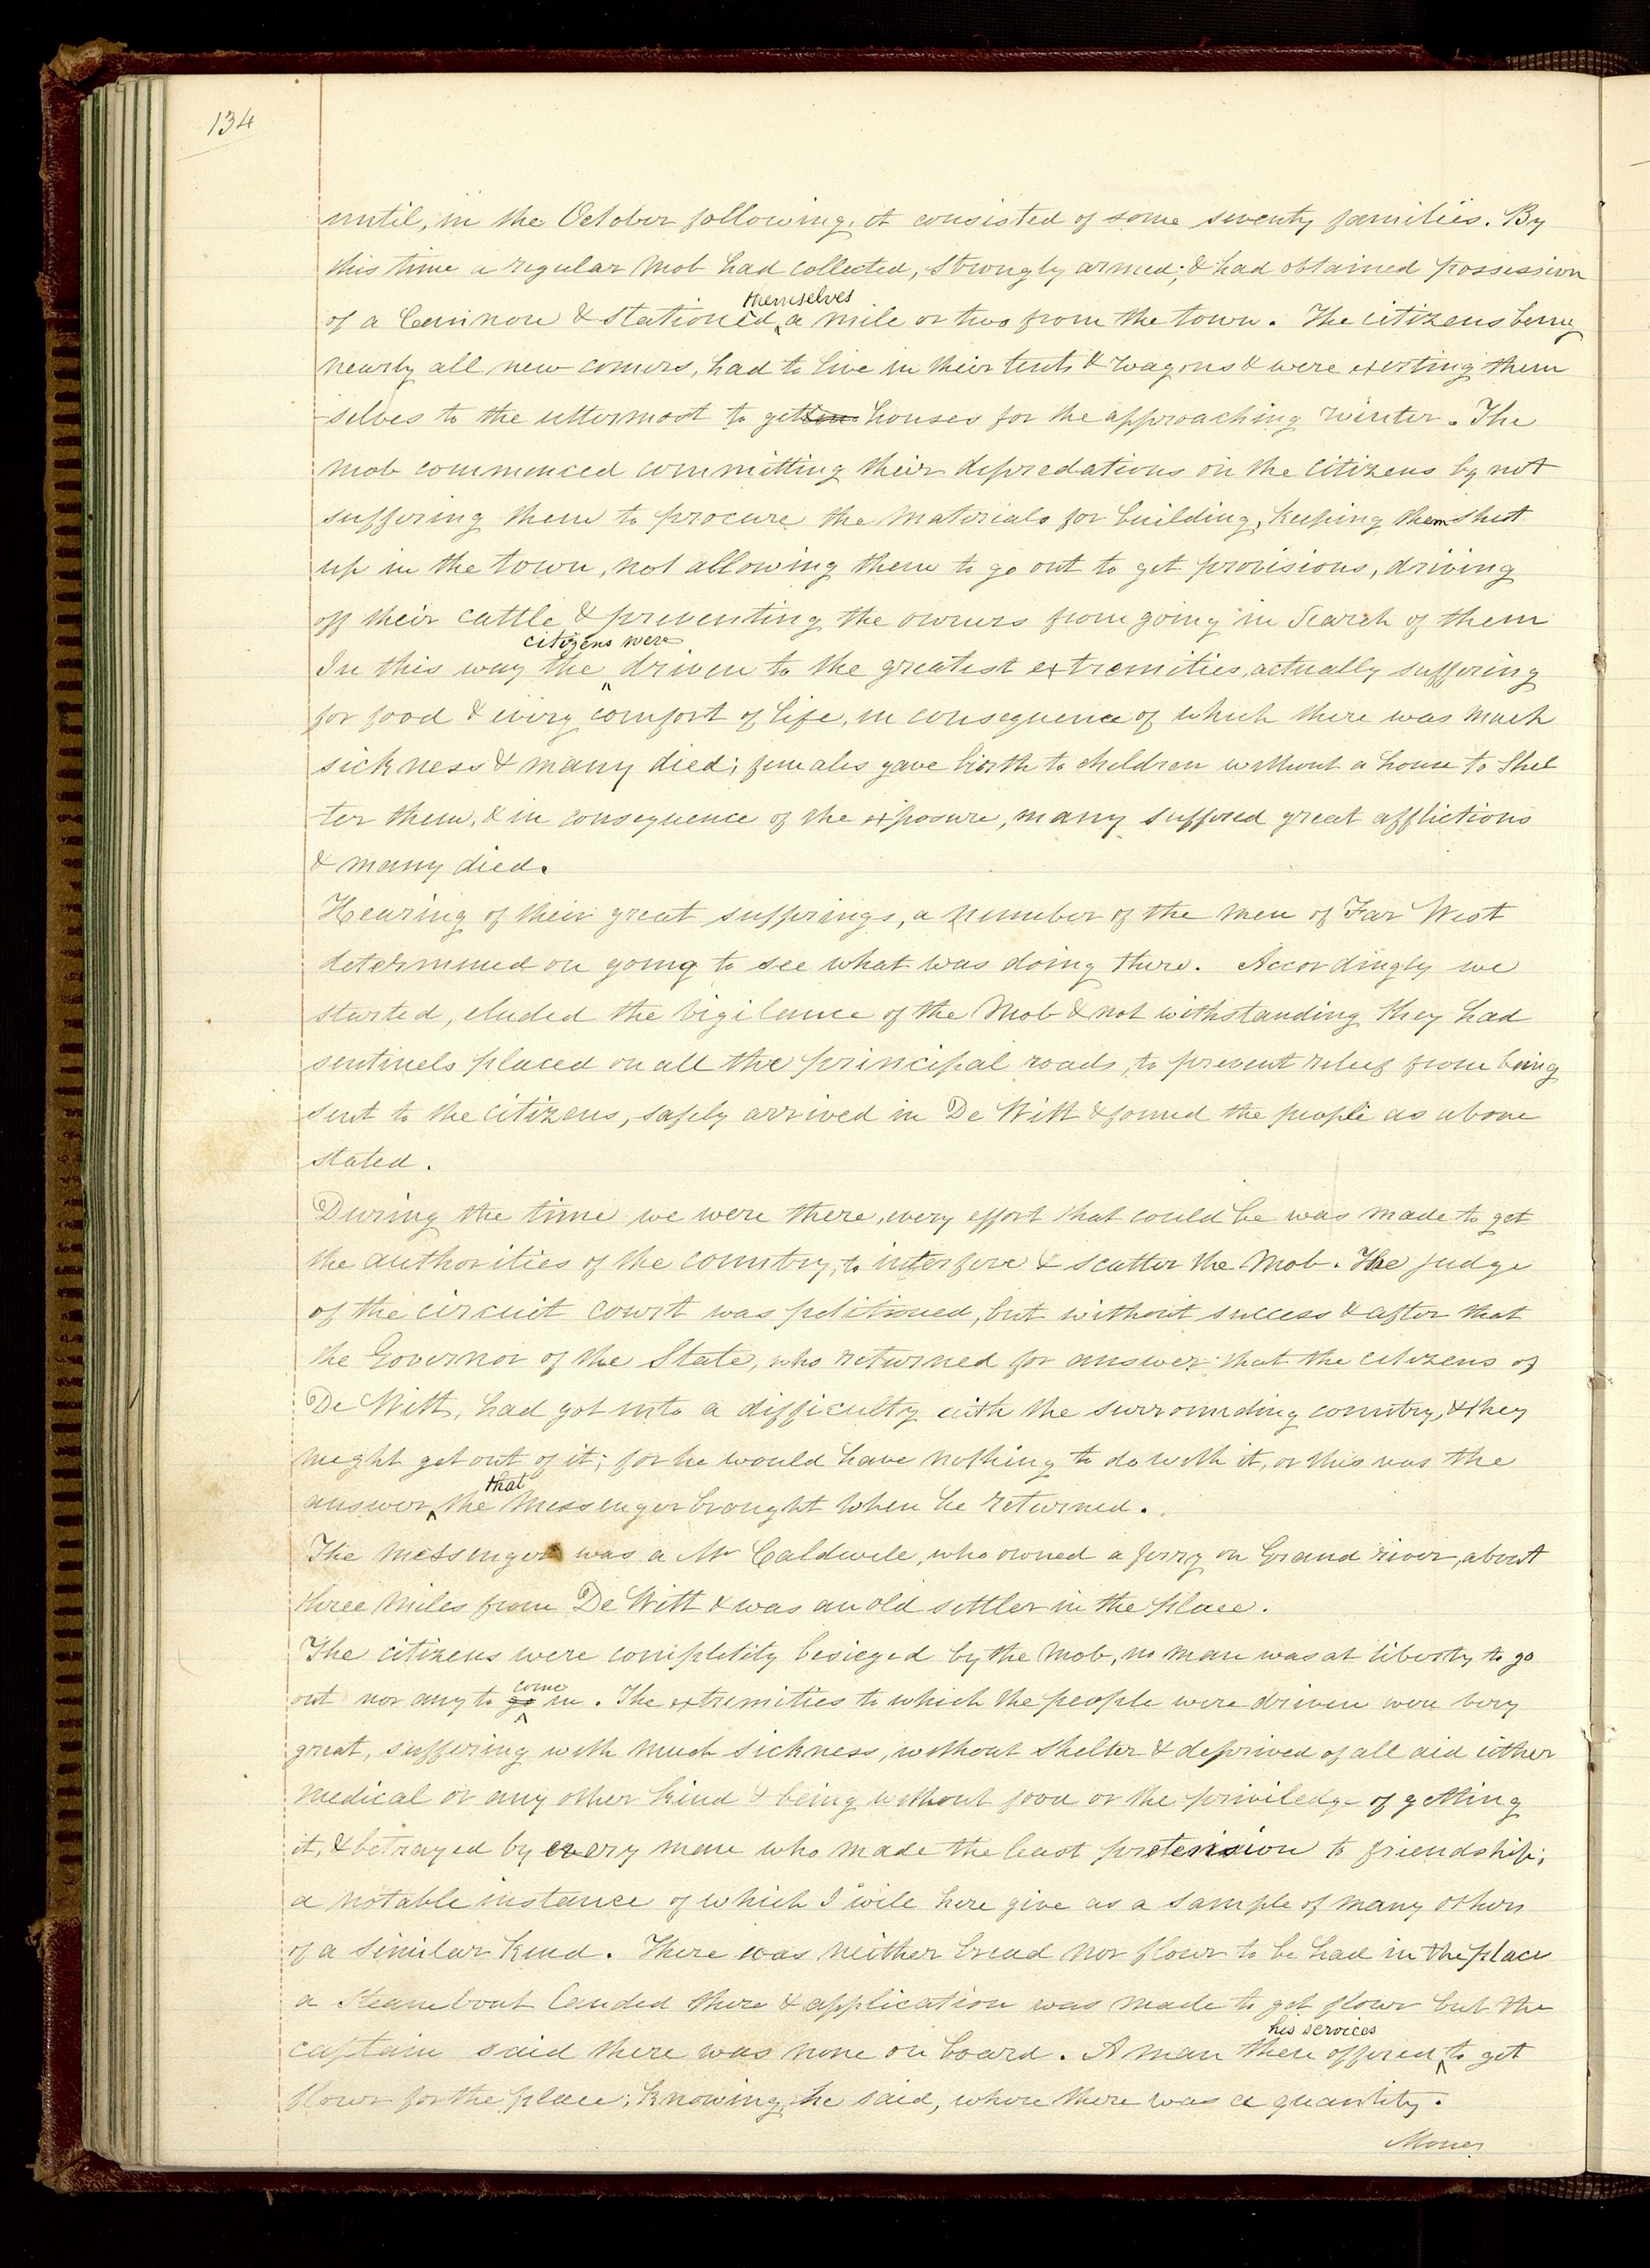 134
until, in the October following, it consisted of some seventy families. By
this time a regular mob had collected, strongly armed; & had obtained possession
themselves
of a Cannon & stationed a mile or two from the town. The citizens being
nearly all new comers, had to live in their tents & wagons & were exerting them
-selves to the uttermost to getten houses for the approaching winter. The
mob commenced committing their depredations on the citizens by not
suffering them to procure the materials for building, keeping them shut
up in the town, not allowing them to go out to get provisions, driving
off their cattle & preventing the owners from going in Search of them
citizens were
In this way the driven to the greatest extremities, actually suffering
for food & every comfort of life, in consequence of which there was much
sickness & many died; females gave birth to children without a house to shel
ter them, & in consequence of the exposure, many suffered great afflictions
& many died.
Hearing of their great sufferings, a number of the men of Far West
determined on going to see what was doing there. Accordingly we
started, eluded the vigilance of the mob & not withstanding they had
sentinels placed on all the principal roads, to prevent relief from being
sent to the citizens, safely arrived in De Witt & found the people as above
stated.
During the time we were there, every effort that could be was made to get
the authorities of the country, to interfere & scatter the mob. The judge
of the circuit court was petitioned, but without success & after that
the Governor of the State, who returned for answer that the citizens of
De Witt, had got into a difficulty with the surrounding country, & they
might get out of it; for he would have nothing to do with it, or this was the
that
answer the messenger brought when he returned.
The messenger was a Mr Caldwell, who owned a ferry on Grand river, about
three miles from De Witt & was an old settler in the place.
The citizens were completely besieged by the mob, no man was at liberty to go
come
out nor any to go in. The extremities to which the people were driven were very
great, suffering with much sickness, without shelter & deprived of all aid either
medical or any other kind & being without food or the priviledge of getting
it, & betrayed by every man who made the least pretension to friendship;
a notable instance of which I will here give as a sample of many others
of a similar kind. There was neither bread nor flour to be had in the place
a steamboat landed there & application was made to get flour but the
his services
captain said there was none on board. A man then offered to get
flour for the place; knowing, he said, where there was a quantity.
Money